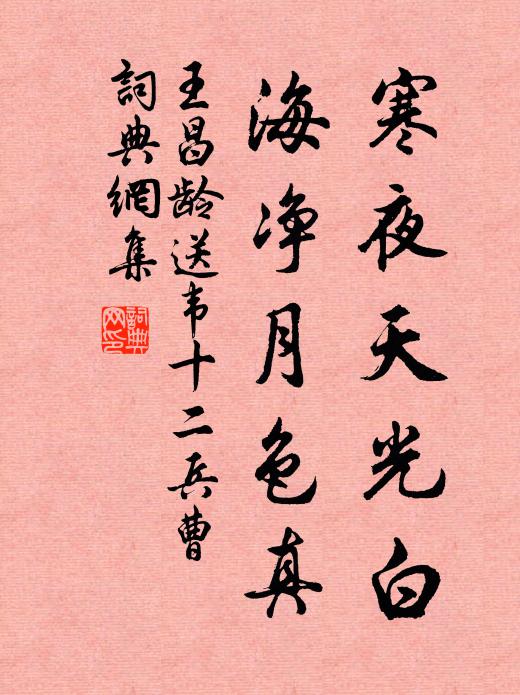 寒夜天光白
海净月色真
王昌龄送韦十二兵曹
詞典網集
詞典網印